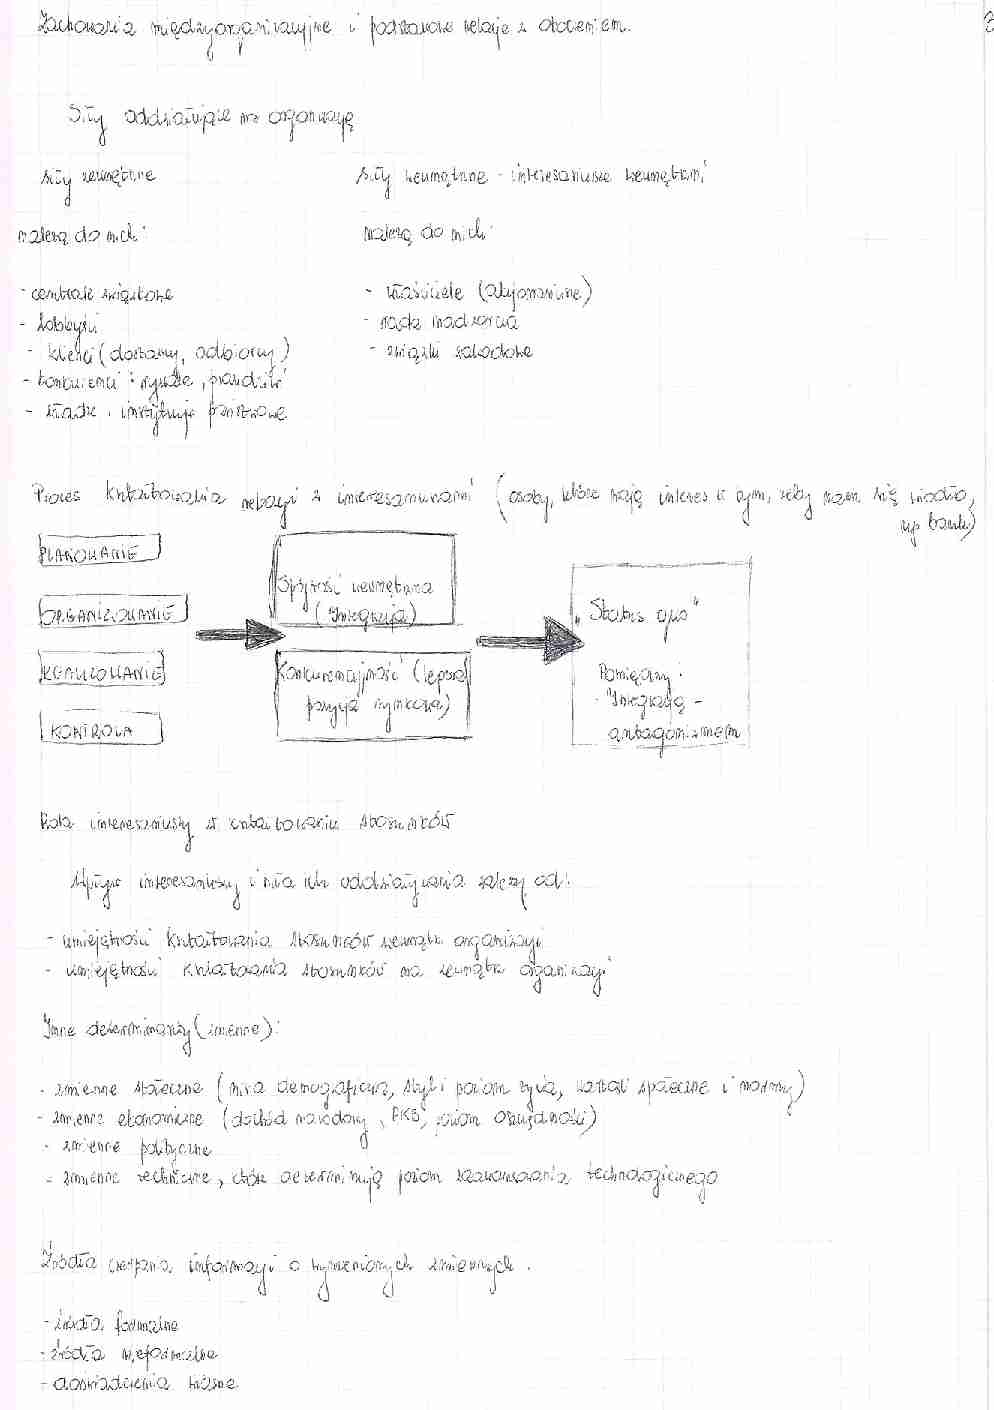 Zachowania międzyorganizacyjne i podstawowe relacje z otoczeniem.
Siły oddziałujące na organizację
siły zewnętrzne
siły wewnętrzne - interesariusze wewnętrzni
należą do nich:
należą do nich:
- centrale związkowe
- lobbyści
- klienci (dostawcy, odbiorcy)
- konkurenci: , 
- władze i instytucje państwowe
- właściciele (akcjonariusze)
- rada nadzorcza
- związki zawodowe
Proces kształtowania relacji z interesariuszami (osoby, które mają interes w tym, żeby nam się wiodło,
np banki)
PLANOWANIE
ORGANIZOWANIE
REALIZOWANIE
KONTROLA
Spójność wewnętrzna
(Integracja)
Konkurencyjność (lepsza
pozycja rynkowa)
"Status quo"
Pomiędzy:
- Integracją -
antagonizmem
Rola interesariuszy w kształtowaniu stosunków
Wpływ interesariuszy i siła ich oddziaływania zależy od:
- umiejętności kształtowania stosunków wewnątrz organizacji
- umiejętności kształtowania stosunków na zewnątrz organizacji
Inne determinanty (zmienne):
- zmienne społeczne (sfera demograficzna, styl i poziom życia, wartości społeczne i normy)
- zmienne ekonomiczne (dochód narodowy, PKB, poziom oszczędności)
- zmienne polityczne
- zmienne techniczne, które determinują poziom zaawansowania technologicznego
Źródła czerpania informacji o wymienionych zmiennych.
- źródła formalne
- źródła nieformalne
- doświadczenia własne